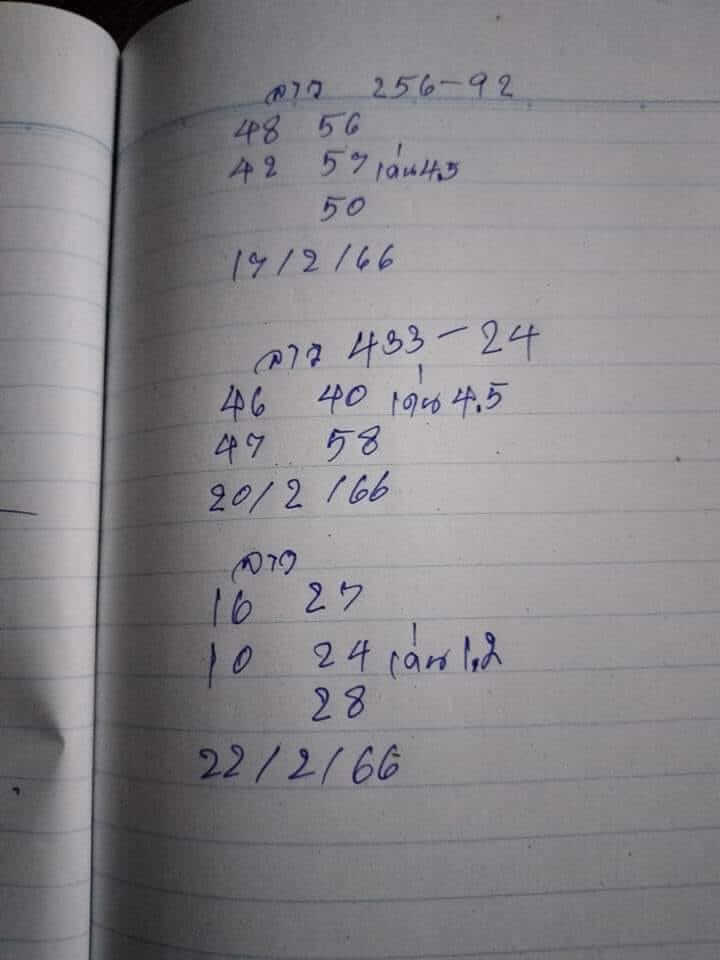 ลาว 256-92
48 56
42 57 เด่น4.5
50
17/2/66
ลาว 433-24
46 40 เด่น 4.5
47 58
20/2/66
ลาว
16 27
10 24 เด่น 1.2
28
22/2/66